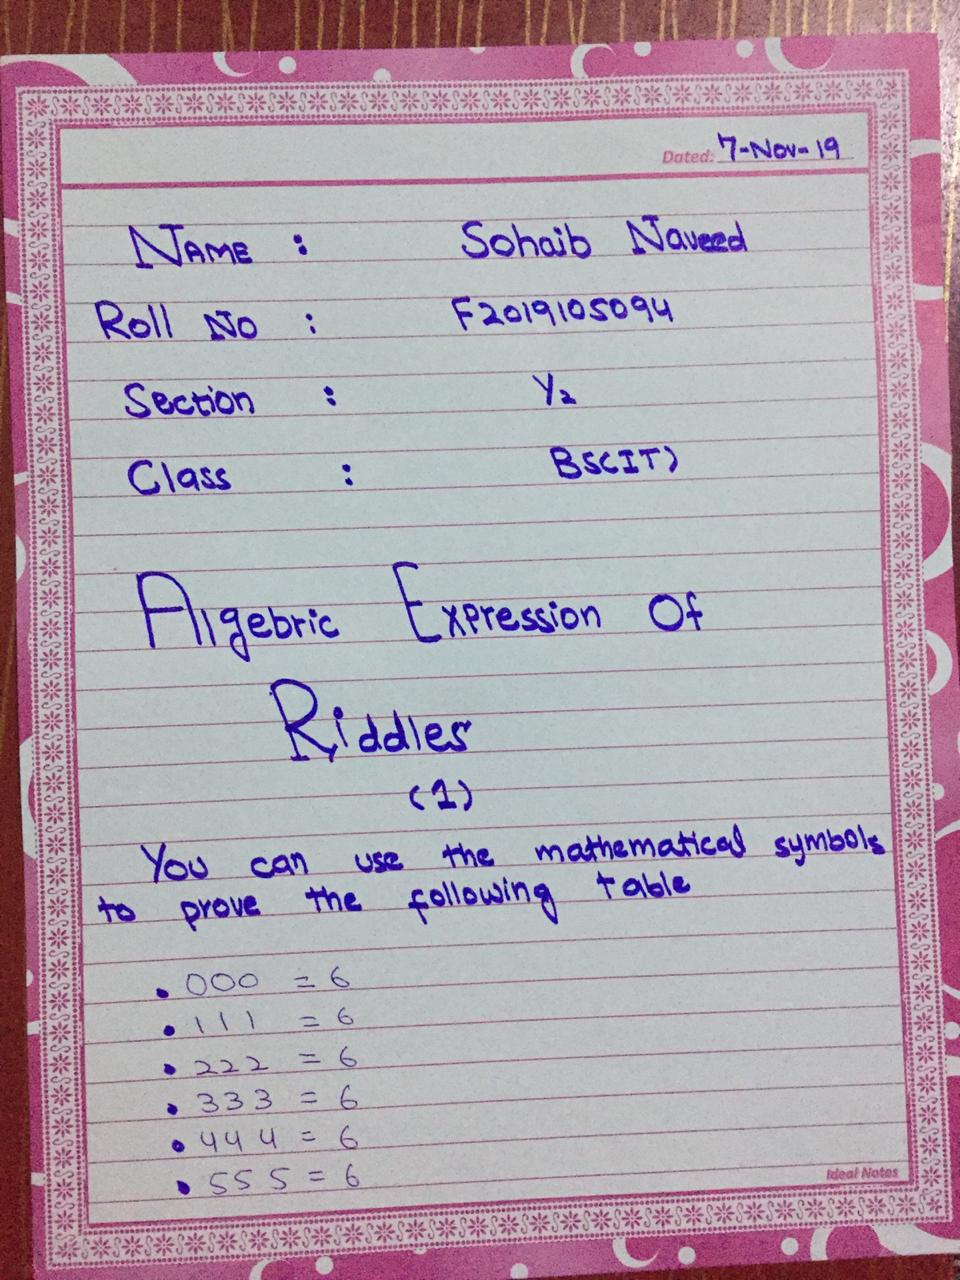 Dated: 7-Nov-19
NAME : Sohaib Naveed
Roll No : F2019105094
Section : Y2
Class : BSCIT)
Algebric Expression Of
Riddles
(1)
You can use the mathematical symbols
to prove the following table
• 000 = 6
• 111 = 6
• 222 = 6
• 333 = 6
• 444 = 6
• 555 = 6
Ideal Notes